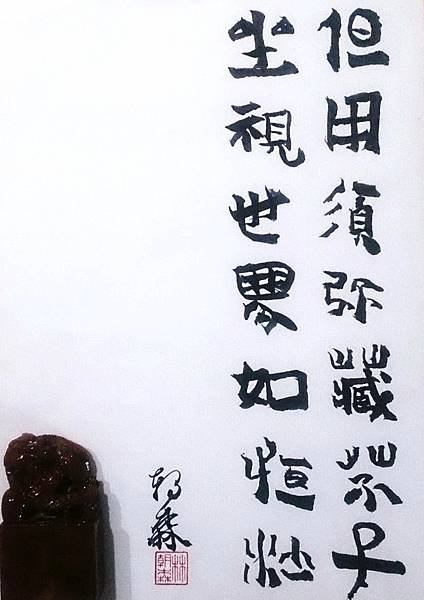 但用須弥藏芥子
坐視世界如恒沙
朝森
林朝森